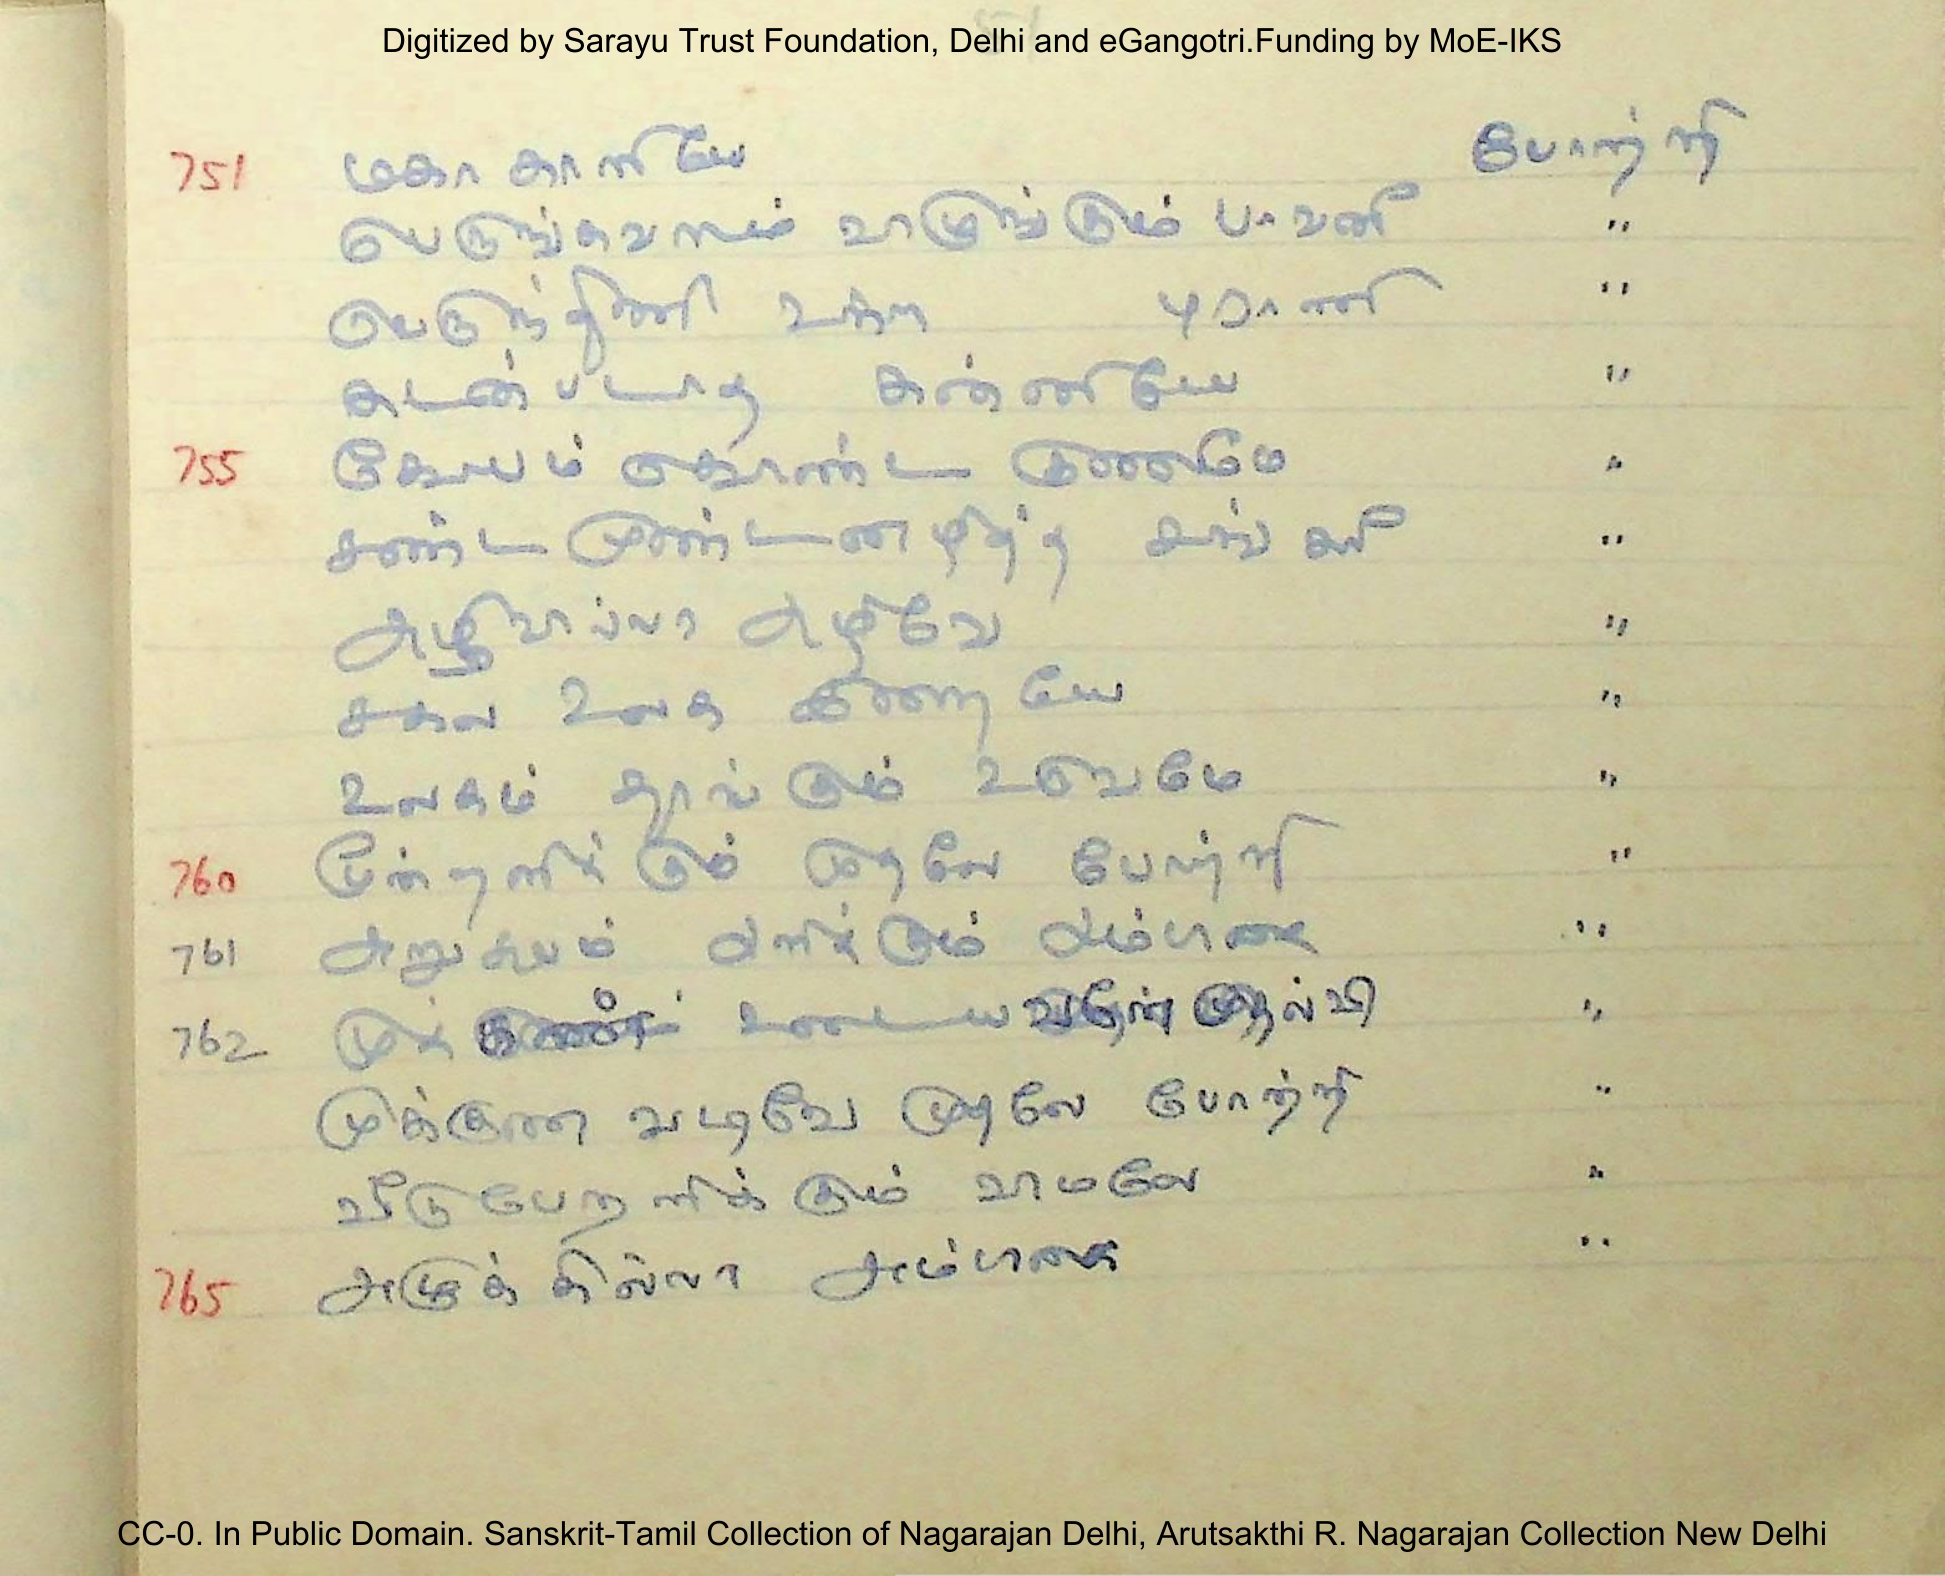 Digitized by Sarayu Trust Foundation, Delhi and eGangotri.Funding by MoE-IKS
751 மகா காளியே போற்றி
வாழுங்கும் பாவனீ "
உக்ர புராணி "
கடன்படாத கன்னியே "
755 கோபம் கொண்ட குணமே "
சண்ட முண்டனழித்த சங்கரீ "
அழிவில்லா அழிவே "
சகல உலக "
உலகம் தாங்கும் உருவமே "
760 முன்னளிக்கும் முதலே போற்றி "
761 அறுசுவம் அளிக்கும் அம்பிகை "
762 முக் உடைய முதல்வி "
முக்குண வடிவே முதலே போற்றி "
வீடுபேறளிக்கும் வாமலே "
765 அழுக்கில்லா அம்பிகை "
CC-0. In Public Domain. Sanskrit-Tamil Collection of Nagarajan Delhi, Arutsakthi R. Nagarajan Collection New Delhi